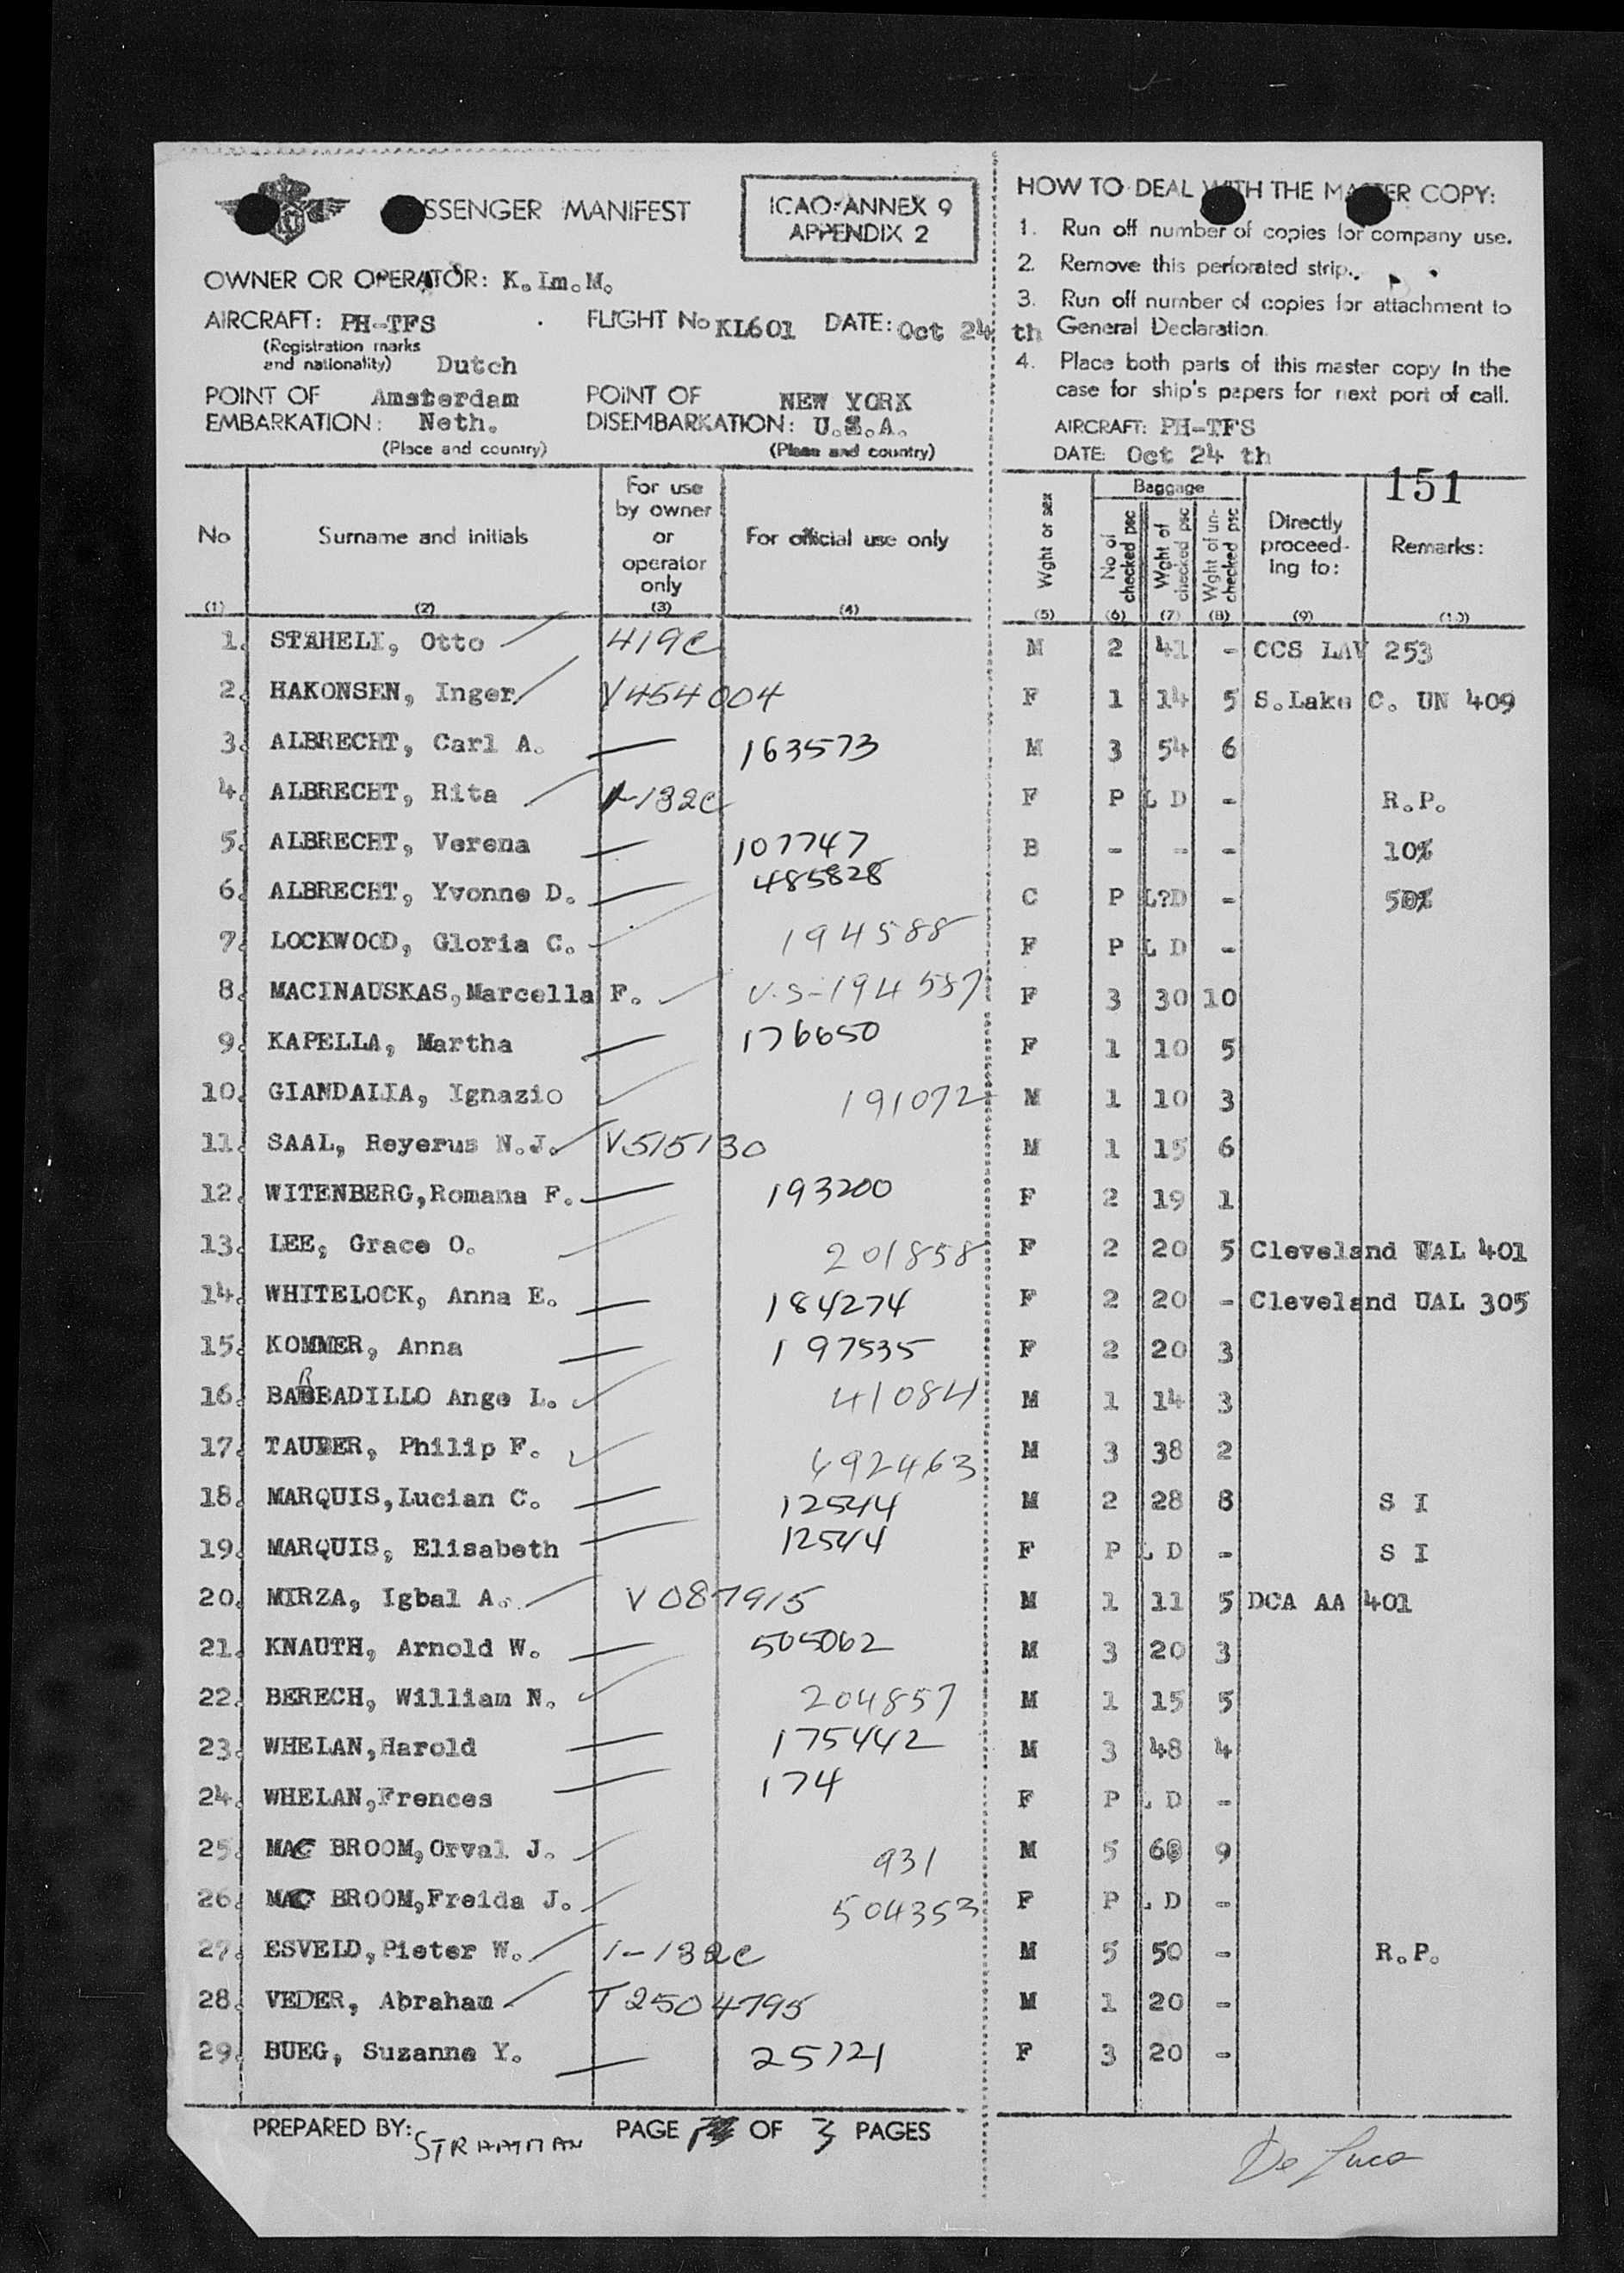 SSENGER MANIFEST
ICAO-ANNEX 9
APPENDIX 2
OWNER OR OPERATOR: K.Lm.M.
AIRCRAFT: PH-TFS FLIGHT No KL601 DATE: Oct 24 th
(Registration marks
and nationality) Dutch
POINT OF Amsterdam POINT OF NEW YORK
EMBARKATION: Neth. DISEMBARKATION: U.S.A.
(Place and country) (Place and country)
HOW TO DEAL WITH THE MASTER COPY:
1. Run off number of copies for company use.
2. Remove this perforated strip.
3. Run off number of copies for attachment to
General Declaration.
4. Place both parts of this master copy in the
case for ship's papers for next port of call.
AIRCRAFT: PH-TFS
DATE: Oct 24 th
151
No Surname and initials For use by owner or operator only For official use only Wght or sex Baggage No of checked psc Wght of checked psc Wght of un-checked psc Directly proceed-ing to: Remarks:
(1) (2) (3) (4) (5) (6) (7) (8) (9) (10)
1. STAHELI, Otto 419c M 2 41 - CCS LAV 253
2. HAKONSEN, Inger V454004 F 1 14 5 S.Lake C. UN 409
3. ALBRECHT, Carl A. — 163573 M 3 54 6
4. ALBRECHT, Rita 1-132c F P L D - R.P.
5. ALBRECHT, Verena — 107747 B - - - 10%
6. ALBRECHT, Yvonne D. — 485828 C P L?D - 50%
7. LOCKWOOD, Gloria C. 194588 F P L D -
8. MACINAUSKAS,Marcella F. U.S-194587 F 3 30 10
9. KAPELLA, Martha — 176650 F 1 10 5
10. GIANDALIA, Ignazio 191072 M 1 10 3
11. SAAL, Reyerus N.J. V515130 M 1 15 6
12. WITENBERG,Romana F. — 193200 F 2 19 1
13. LEE, Grace O. 201858 F 2 20 5 Cleveland UAL 401
14. WHITELOCK, Anna E. — 184274 F 2 20 - Cleveland UAL 305
15. KOMMER, Anna — 197535 F 2 20 3
16. BARBADILLO Ange L. 41084 M 1 14 3
17. TAUBER, Philip F. 492463 M 3 38 2
18. MARQUIS,Lucian C. — 12544 M 2 28 8 S I
19. MARQUIS, Elisabeth — 12544 F P L D - S I
20. MIRZA, Igbal A. V087915 M 1 11 5 DCA AA 401
21. KNAUTH, Arnold W. — 505062 M 3 20 3
22. BERECH, William N. 204857 M 1 15 5
23. WHELAN,Harold — 175442 M 3 48 4
24. WHELAN,Frences — 174 F P L D -
25. MAC BROOM,Orval J. 931 M 5 68 9
26. MAC BROOM,Freida J. 504353 F P L D -
27. ESVELD,Pieter W. 1-132c M 5 50 - R.P.
28. VEDER, Abraham T2504795 M 1 20 -
29. BUEG, Suzanne Y. — 25721 F 3 20 -
PREPARED BY: STRAATMAN PAGE OF 3 PAGES
De Luca